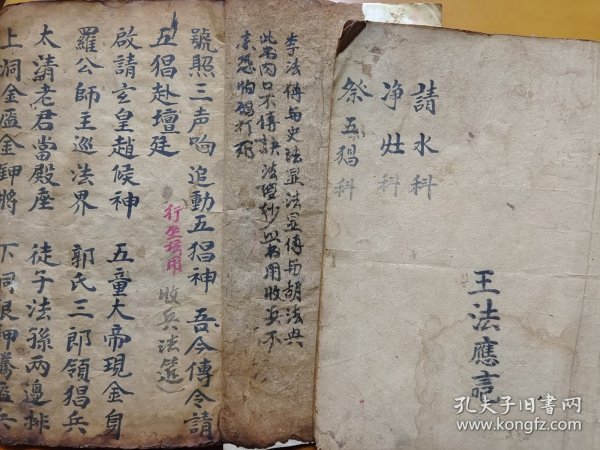 請水科
净灶科
祭五猖科
王法應記
李法傳與史法显法显傳與胡法興
此書内口不傳訣法
号怒怕殇打死
號照三声响追動五猖神 吾今傳令請
五猖赴壇廷
行坐壇用
收兵法筵
啟請玄皇趙候神 五童大帝現金身
羅公師主巡法界 郭氏三郎領猖兵
太清老君當殿座 徒子法孫兩邊排
上洞金盔金鉀將 下洞銀鉀
孔夫子旧书网
www.kongfz.com